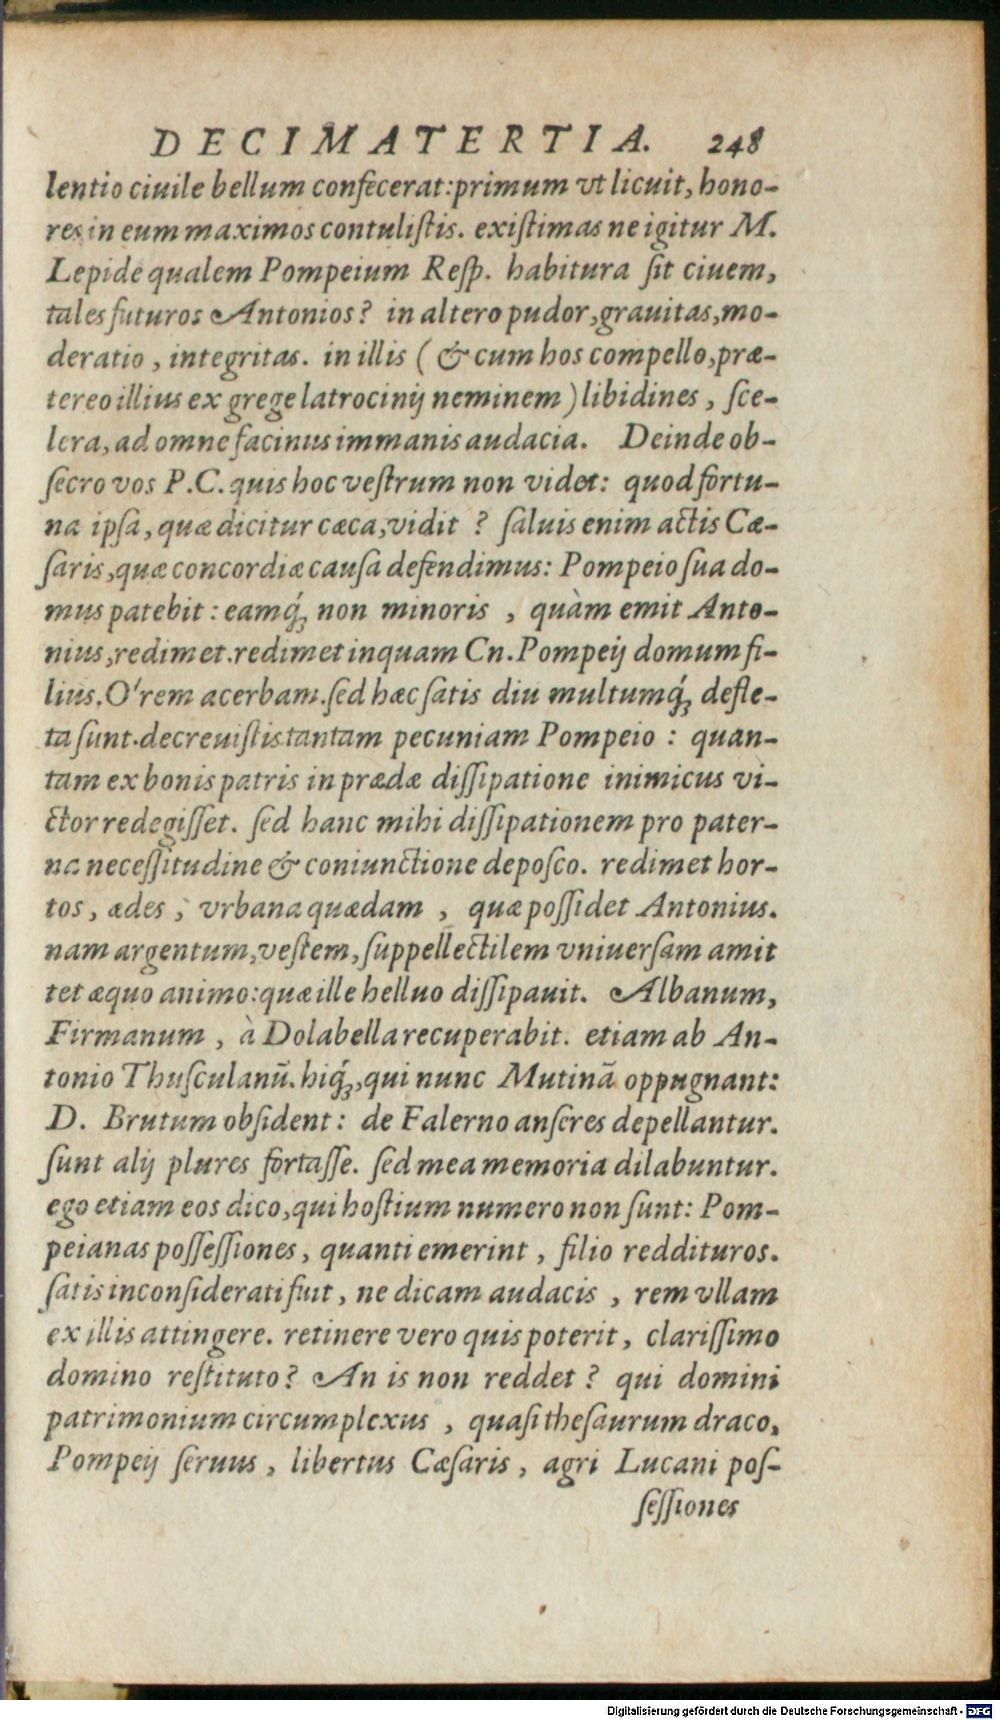 DECIMATERTIA. 248
lentio ciuile bellum confecerat:primum vt licuit, hono-
res in eum maximos contulistis. existimas ne igitur M.
Lepide qualem Pompeium Resp. habitura sit ciuem,
tales futuros Antonios? in altero pudor, grauitas, mo-
deratio, integritas. in illis (& cum hos compello, præ-
tereo illius ex grege latrocinij neminem) libidines, sce-
lera, ad omne facinus immanis audacia. Deinde ob-
secro vos P.C. quis hoc vestrum non videt: quod fortu-
na ipsa, quæ dicitur cæca, vidit? saluis enim actis Cæ-
saris, quæ concordiæ causa defendimus: Pompeio sua do-
mus patebit: eamq́; non minoris, quàm emit Anto-
nius, redimet. redimet inquam Cn. Pompeij domum fi-
lius. O' rem acerbam. sed hæc satis diu multumq́; defle-
ta sunt. decreuistis tantam pecuniam Pompeio: quan-
tam ex bonis patris in prædæ dissipatione inimicus vi-
ctor redegisset. sed hanc mihi dissipationem pro pater-
na necessitudine & coniunctione deposco. redimet hor-
tos, ædes, vrbana quædam, quæ possidet Antonius.
nam argentum, vestem, suppellectilem vniuersam amit
tet æquo animo: quæ ille helluo dissipauit. Albanum,
Firmanum, à Dolabella recuperabit. etiam ab An-
tonio Thusculanū. hiq́;, qui nunc Mutinā oppugnant:
D. Brutum obsident: de Falerno anseres depellantur.
sunt alij plures fortasse. sed mea memoria dilabuntur.
ego etiam eos dico, qui hostium numero non sunt: Pom-
peianas possessiones, quanti emerint, filio reddituros.
satis inconsiderati fuit, ne dicam audacis, rem vllam
ex illis attingere. retinere vero quis poterit, clarissimo
domino restituto? An is non reddet? qui domini
patrimonium circumplexus, quasi thesaurum draco,
Pompeij seruus, libertus Cæsaris, agri Lucani pos-
sessiones
Digitalisierung gefördert durch die Deutsche Forschungsgemeinschaft - DFG